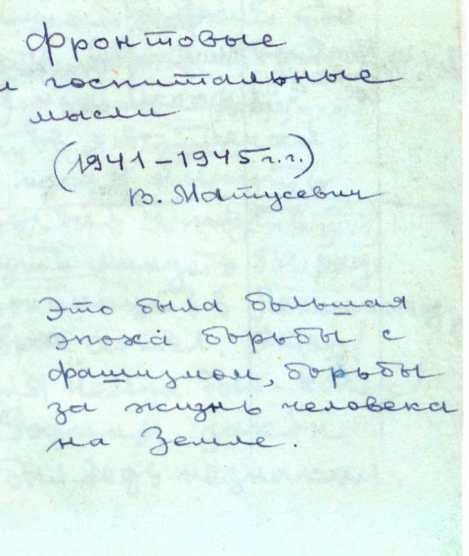 Фронтовые
и госпитальные
мысли
(1941-1945 г.г.)
В. Матусевич
Это была большая
эпоха борьбы с
фашизмом, борьбы
за жизнь человека
на Земле.